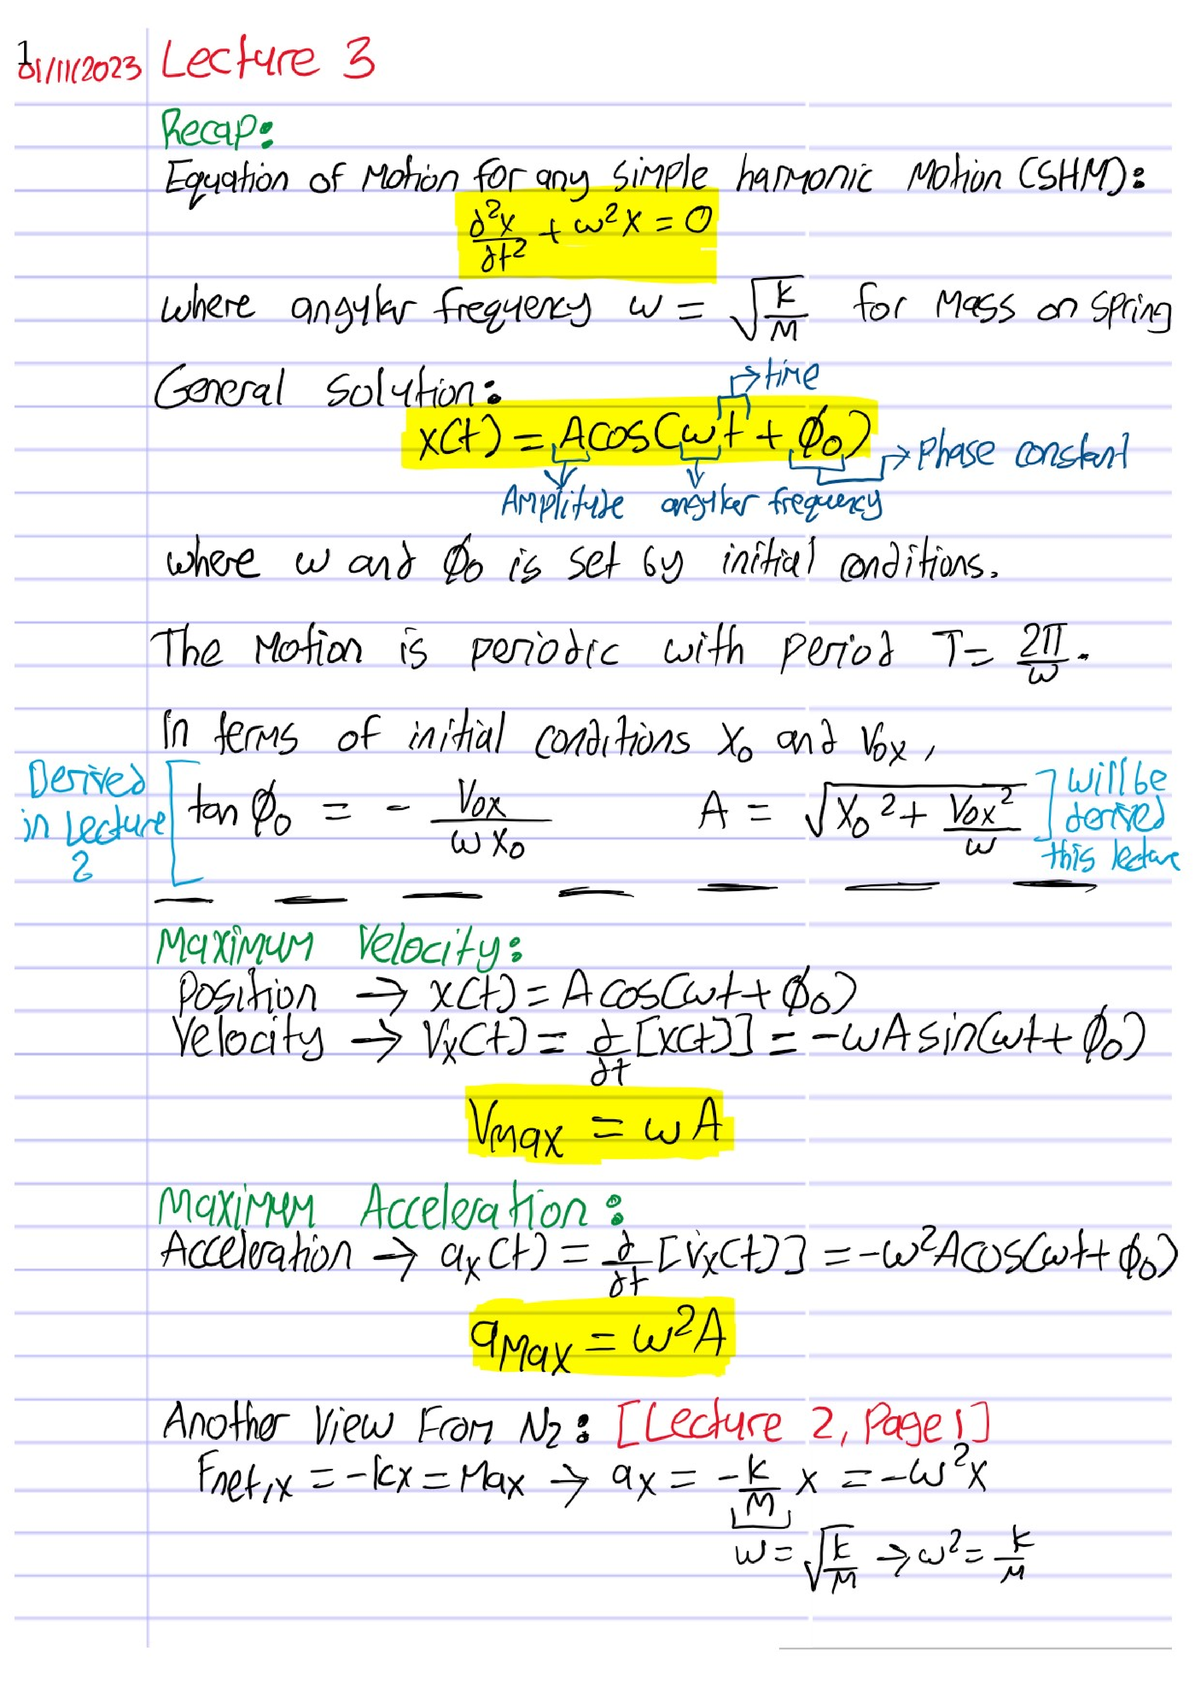 1
01/11/2023 Lecture 3
Recap:
Equation of Motion for any simple harmonic Motion (SHM):
d²x/dt² + ω²x = 0
where angular frequency ω = √(k/M) for Mass on spring
General solution:
→ time
x(t) = Acos(ωt + ϕ₀)
→ Phase constant
Amplitude angular frequency
where ω and ϕ₀ is set by initial conditions.
The Motion is periodic with period T = 2π/ω.
In terms of initial conditions x₀ and V₀x,
Derived in Lecture 2 [ tan ϕ₀ = - V₀x/ωx₀ A = √(x₀² + V₀x²/ω) ] will be derived this lecture
Maximum Velocity:
Position → x(t) = A cos(ωt + ϕ₀)
Velocity → Vx(t) = d/dt [x(t)] = -ωA sin(ωt + ϕ₀)
VMax = ωA
Maximum Acceleration:
Acceleration → ax(t) = d/dt [Vx(t)] = -ω²Acos(ωt + ϕ₀)
aMax = ω²A
Another View From N2: [Lecture 2, Page 1]
Fnet,x = -kx = Max → ax = -k/M x = -ω²x
ω = √(k/M) → ω² = k/M